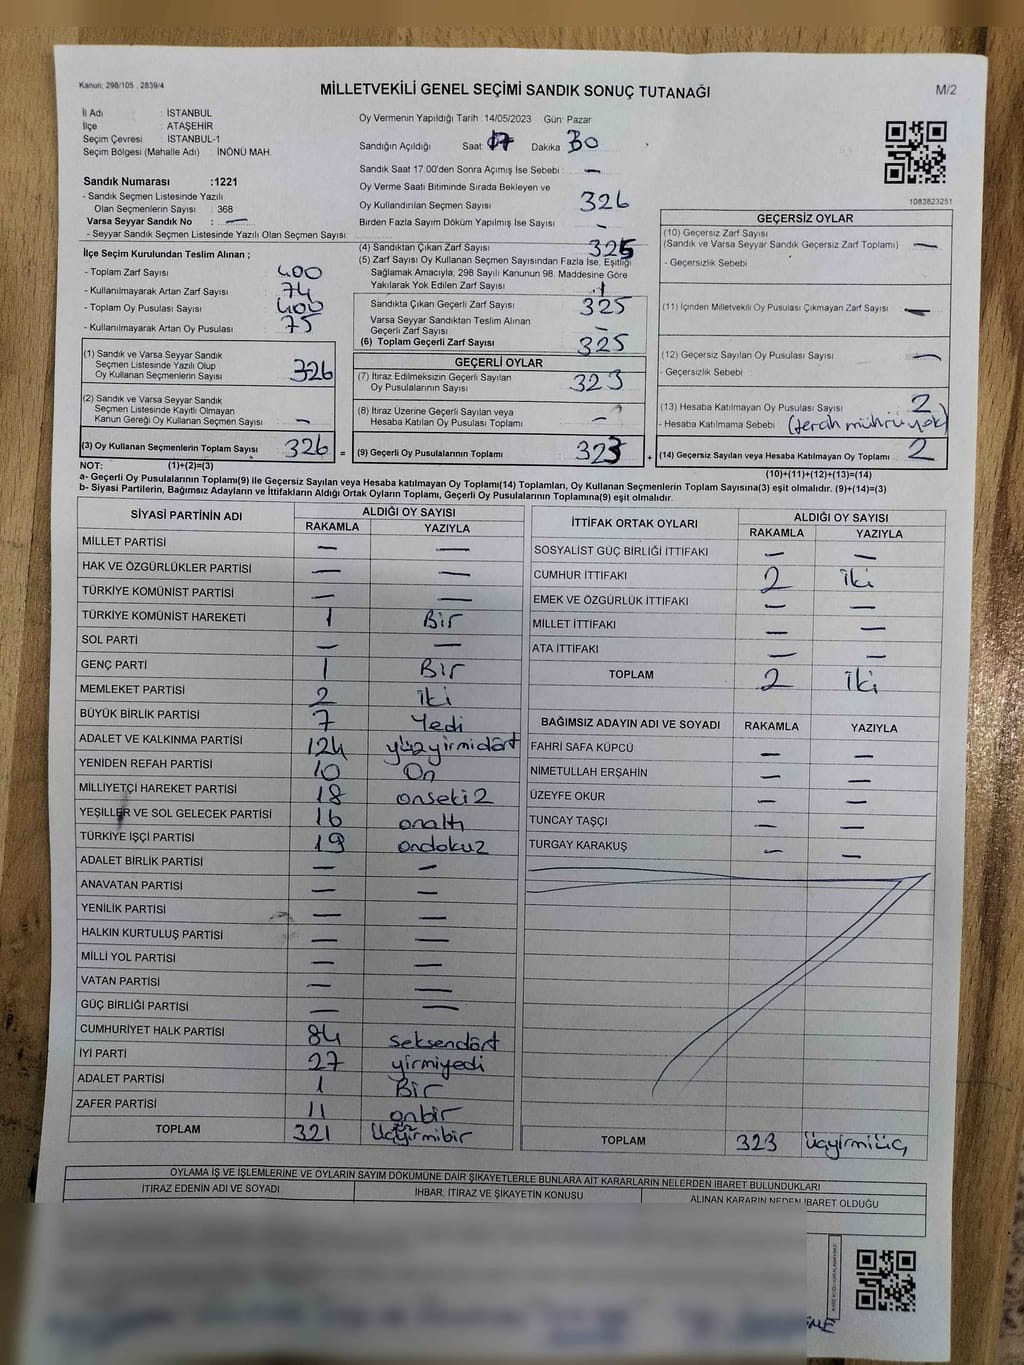 Kanun, 298/105 , 2839/4
MİLLETVEKİLİ GENEL SEÇİMİ SANDIK SONUÇ TUTANAĞI
M/2
İl Adı : İSTANBUL
İlçe : ATAŞEHİR
Seçim Çevresi : İSTANBUL-1
Seçim Bölgesi (Mahalle Adı) : İNÖNÜ MAH.
Oy Vermenin Yapıldığı Tarih : 14/05/2023 Gün: Pazar
Sandığın Açıldığı Saat: 17 Dakika 30
Sandık Saat 17:00'den Sonra Açımış İse Sebebi : —
Oy Verme Saati Bitiminde Sırada Bekleyen ve
Oy Kullandırılan Seçmen Sayısı 326
Birden Fazla Sayım Döküm Yapılmış İse Sayısı : —
1083823251
Sandık Numarası :1221
- Sandık Seçmen Listesinde Yazılı
Olan Seçmenlerin Sayısı : 368
Varsa Seyyar Sandık No : —
- Seyyar Sandık Seçmen Listesinde Yazılı Olan Seçmen Sayısı:
İlçe Seçim Kurulundan Teslim Alınan ;
- Toplam Zarf Sayısı : 400
- Kullanılmayarak Artan Zarf Sayısı : 74
- Toplam Oy Pusulası Sayısı : 400
- Kullanılmayarak Artan Oy Pusulası : 75
(1) Sandık ve Varsa Seyyar Sandık
Seçmen Listesinde Yazılı Olup
Oy Kullanan Seçmenlerin Sayısı 326
(2) Sandık ve Varsa Seyyar Sandık
Seçmen Listesinde Kayıtlı Olmayan
Kanun Gereği Oy Kullanan Seçmen Sayısı —
(3) Oy Kullanan Seçmenlerin Toplam Sayısı 326 =
(4) Sandıktan Çıkan Zarf Sayısı 325
(5) Zarf Sayısı Oy Kullanan Seçmen Sayısından Fazla İse, Eşitliği
Sağlamak Amacıyla, 298 Sayılı Kanunun 98. Maddesine Göre
Yakılarak Yok Edilen Zarf Sayısı :
Sandıkta Çıkan Geçerli Zarf Sayısı 325
Varsa Seyyar Sandıktan Teslim Alınan
Geçerli Zarf Sayısı —
(6) Toplam Geçerli Zarf Sayısı 325
GEÇERLİ OYLAR
(7) İtiraz Edilmeksizin Geçerli Sayılan
Oy Pusulalarının Sayısı 323
(8) İtiraz Üzerine Geçerli Sayılan veya
Hesaba Katılan Oy Pusulası Toplamı —
(9) Geçerli Oy Pusulalarının Toplamı 323 +
GEÇERSİZ OYLAR
(10) Geçersiz Zarf Sayısı
(Sandık ve Varsa Seyyar Sandık Geçersiz Zarf Toplamı) —
- Geçersizlik Sebebi
(11) İçinden Milletvekili Oy Pusulası Çıkmayan Zarf Sayısı : —
(12) Geçersiz Sayılan Oy Pusulası Sayısı —
- Geçersizlik Sebebi
(13) Hesaba Katılmayan Oy Pusulası Sayısı : 2
- Hesaba Katılmama Sebebi (tercih mührü yok)
(14) Geçersiz Sayılan veya Hesaba Katılmayan Oy Toplamı 2
NOT: (1)+(2)=(3)
(10)+(11)+(12)+(13)=(14)
a- Geçerli Oy Pusulalarının Toplamı(9) ile Geçersiz Sayılan veya Hesaba katılmayan Oy Toplamı(14) Toplamları, Oy Kullanan Seçmenlerin Toplam Sayısına(3) eşit olmalıdır. (9)+(14)=(3)
b- Siyasi Partilerin, Bağımsız Adayların ve İttifakların Aldığı Ortak Oyların Toplamı, Geçerli Oy Pusulalarının Toplamına(9) eşit olmalıdır.
SİYASİ PARTİNİN ADI ALDIĞI OY SAYISI
RAKAMLA YAZIYLA
MİLLET PARTİSİ — —
HAK VE ÖZGÜRLÜKLER PARTİSİ — —
TÜRKİYE KOMÜNİST PARTİSİ — —
TÜRKİYE KOMÜNİST HAREKETİ 1 Bir
SOL PARTİ — —
GENÇ PARTİ 1 Bir
MEMLEKET PARTİSİ 2 iki
BÜYÜK BİRLİK PARTİSİ 7 Yedi
ADALET VE KALKINMA PARTİSİ 124 yüzyirmidört
YENİDEN REFAH PARTİSİ 10 On
MİLLİYETÇİ HAREKET PARTİSİ 18 onsekiz
YEŞİLLER VE SOL GELECEK PARTİSİ 16 onaltı
TÜRKİYE İŞÇİ PARTİSİ 19 ondokuz
ADALET BİRLİK PARTİSİ — —
ANAVATAN PARTİSİ — —
YENİLİK PARTİSİ — —
HALKIN KURTULUŞ PARTİSİ — —
MİLLİ YOL PARTİSİ — —
VATAN PARTİSİ — —
GÜÇ BİRLİĞİ PARTİSİ — —
CUMHURİYET HALK PARTİSİ 84 seksendört
İYİ PARTİ 27 yirmiyedi
ADALET PARTİSİ 1 Bir
ZAFER PARTİSİ 11 onbir
TOPLAM 321 üçyirmibir
İTTİFAK ORTAK OYLARI ALDIĞI OY SAYISI
RAKAMLA YAZIYLA
SOSYALİST GÜÇ BİRLİĞİ İTTİFAKI — —
CUMHUR İTTİFAKI 2 İki
EMEK VE ÖZGÜRLÜK İTTİFAKI — —
MİLLET İTTİFAKI — —
ATA İTTİFAKI — —
TOPLAM 2 İki
BAĞIMSIZ ADAYIN ADI VE SOYADI RAKAMLA YAZIYLA
FAHRİ SAFA KÜPCÜ — —
NİMETULLAH ERŞAHİN — —
ÜZEYFE OKUR — —
TUNCAY TAŞÇI — —
TURGAY KARAKUŞ — —
TOPLAM 323 üçyirmiüç
OYLAMA İŞ VE İŞLEMLERİNE VE OYLARIN SAYIM DÖKÜMÜNE DAİR ŞİKAYETLERLE BUNLARA AİT KARARLARIN NELERDEN İBARET BULUNDUKLARI
İTİRAZ EDENİN ADI VE SOYADI
İHBAR, İTİRAZ VE ŞİKAYETİN KONUSU
ALINAN KARARIN NEDEN İBARET OLDUĞU